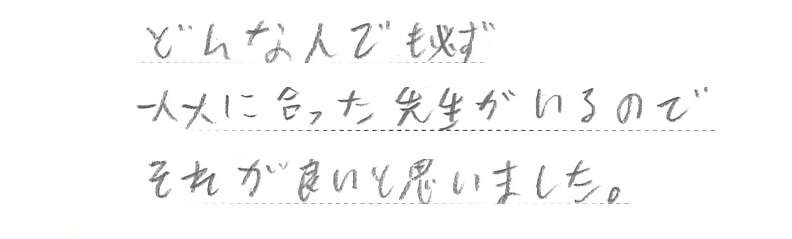 どんな人でも必ず
一人人に合った先生がいるので
それが良いと思いました。